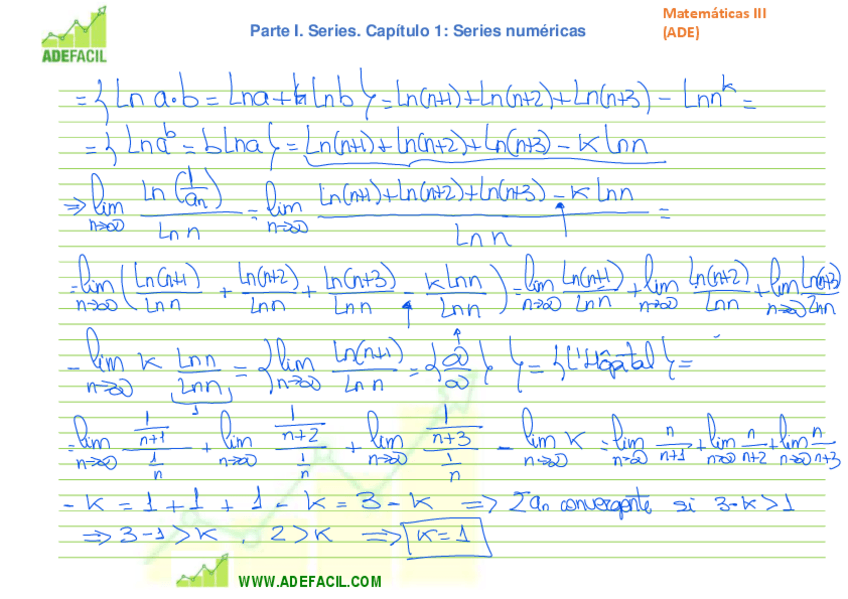 Parte I. Series. Capítulo 1: Series numéricas
Matemáticas III
(ADE)
ADEFACIL
= { Ln a·b = Lna + Lnb } = Ln(n+1) + Ln(n+2) + Ln(n+3) - Ln n^k =
= { Lna^b = bLna } = Ln(n+1) + Ln(n+2) + Ln(n+3) - K lnn
⇒ lim n→∞ Ln(1/an) / Ln n = lim n→∞ (Ln(n+1) + Ln(n+2) + Ln(n+3) - K Lnn) / Ln n =
= lim n→∞ ( Ln(n+1)/Ln n + Ln(n+2)/Ln n + Ln(n+3)/Ln n - K lnn/Ln n ) = lim n→∞ Ln(n+1)/Ln n + lim n→∞ Ln(n+2)/Ln n + lim n→∞ Ln(n+3)/Lnn
- lim n→∞ K Lnn/Lnn 1 = { lim n→∞ Ln(n+1)/Ln n = { ∞/∞ } } = { L'Hôpital } =
= lim n→∞ (1/(n+1))/(1/n) + lim n→∞ (1/(n+2))/(1/n) + lim n→∞ (1/(n+3))/(1/n) - lim n→∞ K = lim n→∞ n/(n+1) + lim n→∞ n/(n+2) + lim n→∞ n/(n+3)
- K = 1 + 1 + 1 - K = 3 - K ⇒ Σ an convergente si 3-K > 1
⇒ 3-1 > K , 2 > K ⇒ K = 1
WWW.ADEFACIL.COM